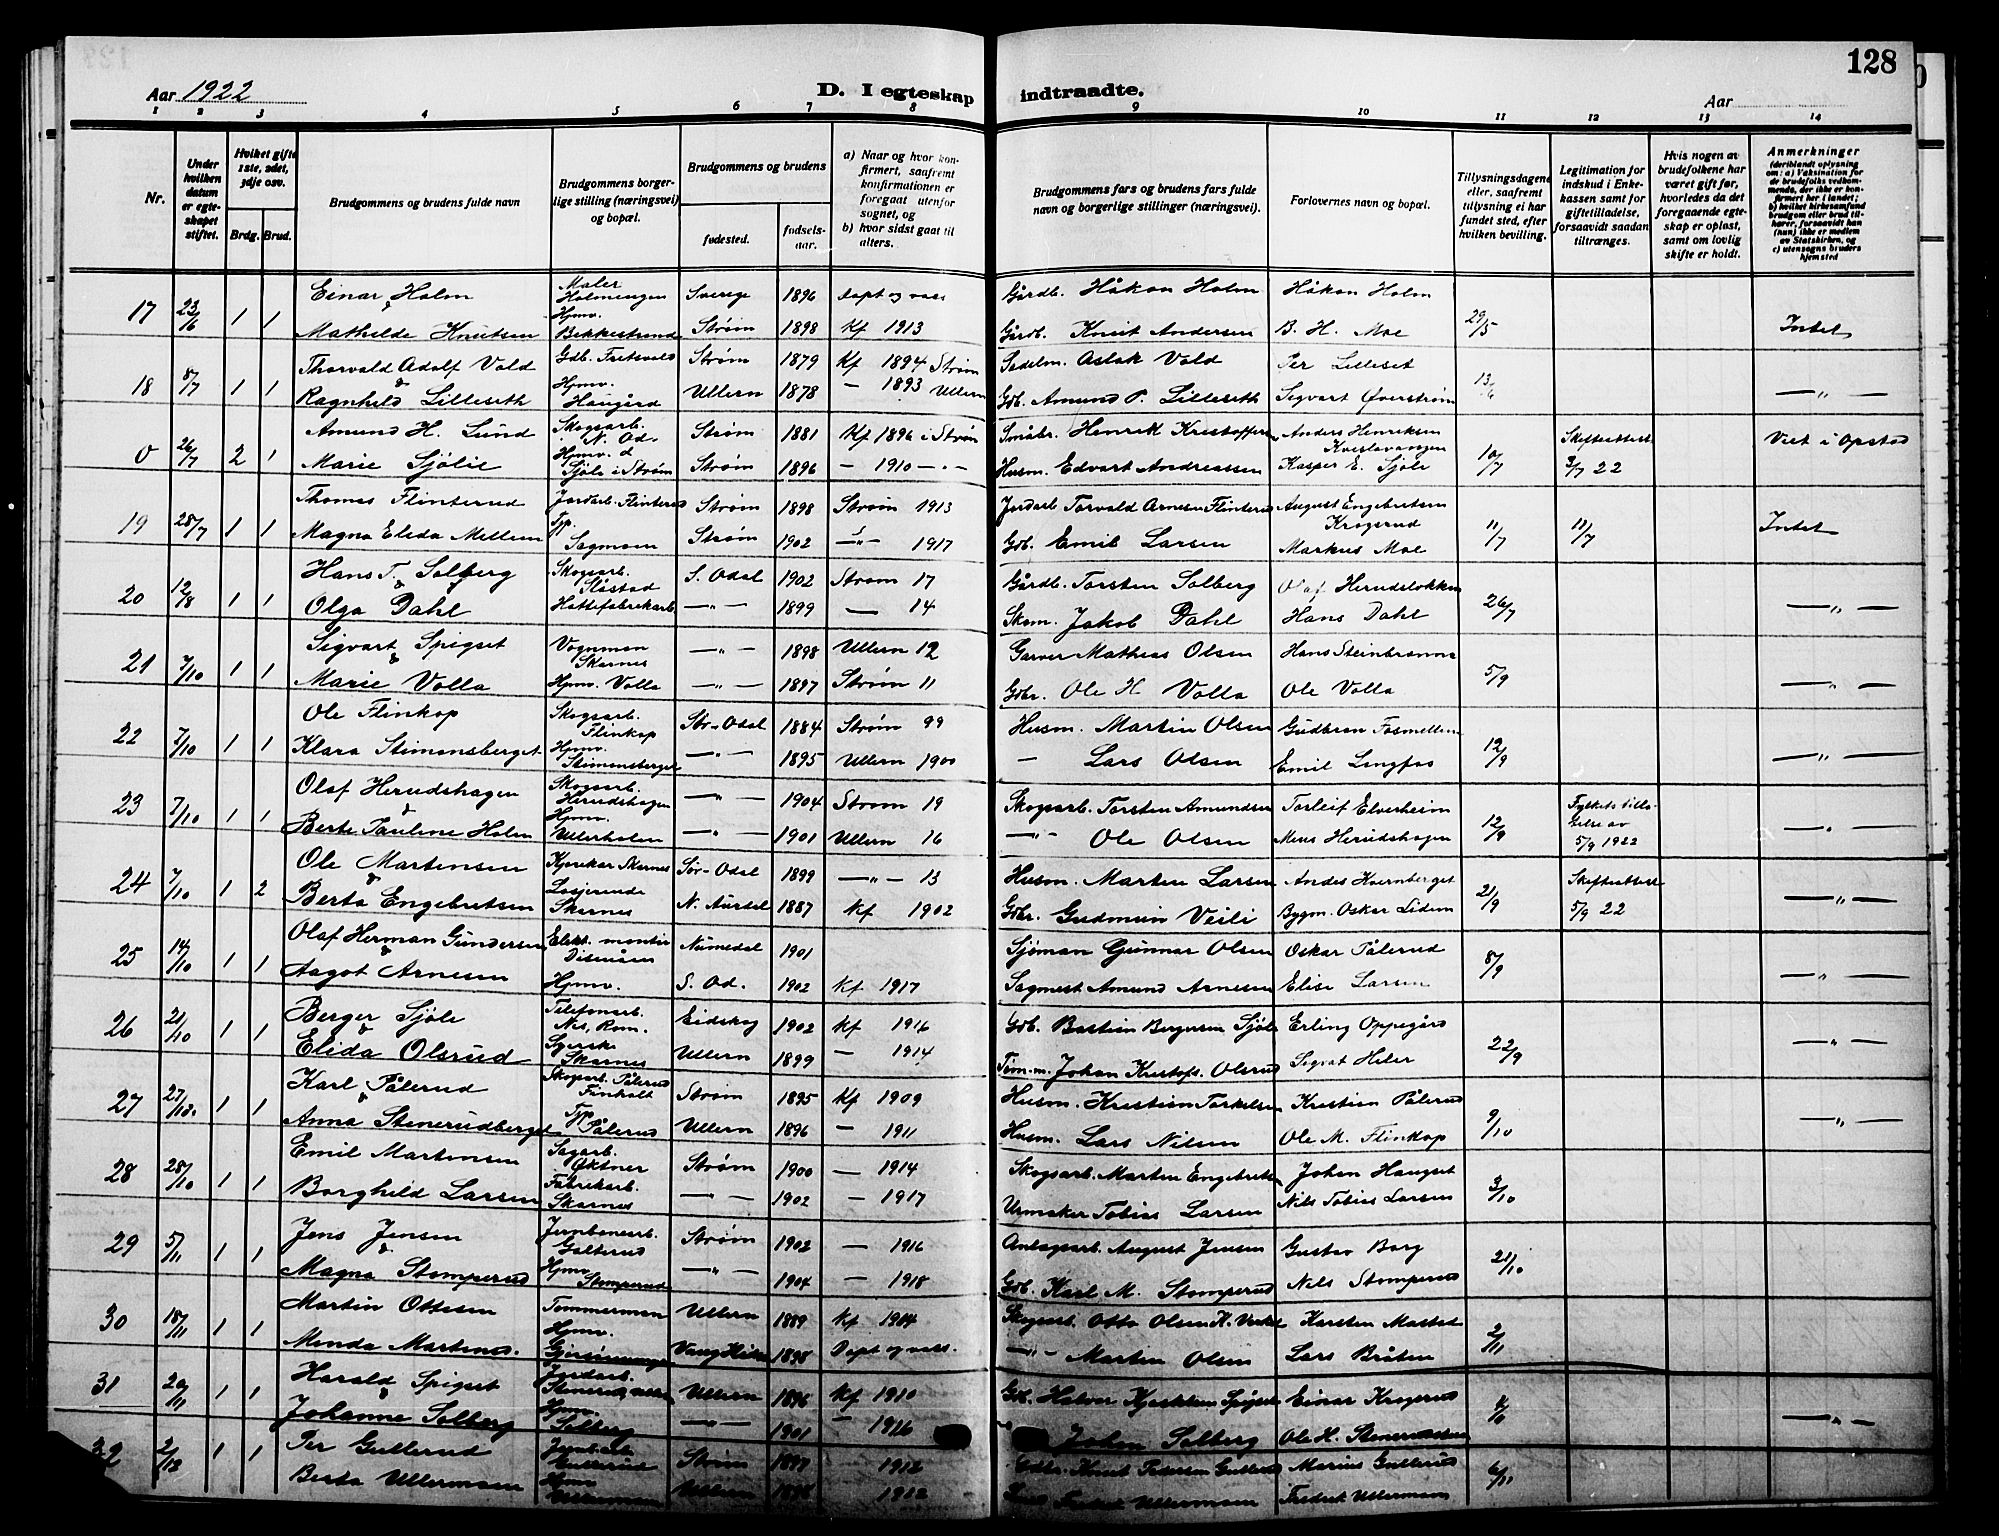 128
Aar 1922
D. I egteskap indtraadte.
Aar
1 2 3 4 5 6 7 8 9 10 11 12 13 14
Nr.
Under hvilken datum er egteskapet stiftet.
Hvilket gifte 1ste, 2det, 3dje osv.
Brdg. Brud.
Brudgommens og brudens fulde navn
Brudgommens borgerlige stilling (næringsvei) og bopæl.
Brudgommens og brudens
fødested.
fødselsaar.
a) Naar og hvor konfirmert, saafremt konfirmationen er foregaat utenfor sognet, og
b) hvor sidst gaat til alters.
Brudgommens fars og brudens fars fulde navn og borgerlige stillinger (næringsvei).
Forlovernes navn og bopæl.
Tillysningsdagene eller, saafremt tillysning ei har fundet sted, efter hvilken bevilling.
Legitimation for indskud i Enkekassen samt for giftetilladelse, forsaavidt saadan tiltrænges.
Hvis nogen av brudefolkene har været gift før, hvorledes da det foregaaende egteskap er opløst, samt om lovlig skifte er holdt.
Anmerkninger
(deriblandt oplysning om: a) Vaksination for de brudefolks vedkommende, der ikke er konfirmert her i landet; b) hvilket kirkesamfund brudgom eller brud tilhører, forsaavidt han (hun) ikke er medlem av Statskirken, og c) utensogns bruders hjemsted
17 23/6 1 1 Einar Holm Maler Holmengen Sverige 1896 døpt og vacc Gårdb. Håkon Holm Håkon Holm 29/5 Intet
& Mathilde Knutsen Hjmv. Bekkestrand Strøm 1898 Kf 1913 Gårdb. Knut Andersen B. H. Moe
18 8/7 1 1 Thorvald Adolf Vold Gdb. Strøm 1879 Kf 1894 Strøm Sadelm. Aslak Vold Per Lilleset 13/6 — " —
& Ragnhild Lilleseth Hjmv. Haugård Ullern 1878 — 1893 Ullern Gdb. Amund P. Lilleseth Sigvart Øverstrøm
0 26/7 2 1 Amund H. Lund Skogsarb. N. Od. Strøm 1881 Kf 1896 i Strøm Småbr. Henrik Kristoffersen Anders Henriksen 10/7 Skifteattest 3/7 22 Viet i Opstad
Marie Sjölie Hjmv. d Sjöli i Strøm Strøm 1896 — 1910 — " — Husm. Edvart Andreassen Kasper E. Sjöli
19 28/7 1 1 Thomas Flinterud Jordarb. Flinterud Strøm 1898 Strøm 1913 Jordarb Torvald Arnesen Flinterud August Engebretsen Krogsrud 11/7 11/7 Intet
Magna Elida Mellem Tjp. Sagmoen Strøm 1902 — " — 1917 Gdb. Emil Larsen Markus Moe
20 12/8 1 1 Hans T. Solberg Skogsarb. Slåstad S. Odal 1902 Strøm 17 Gårdb. Torsten Solberg Olaf Herudsløkken 26/7 — " —
& Olga Dahl Hattefabrikarb — " — 1899 — 14 Skom. Jakob Dahl Hans Dahl
21 7/10 1 1 Sigvart Spigset Vognman Skarnes — " — 1898 Ullern 12 Garver Mathias Olsen Hans 5/9 — " —
& Marie Volla Hjmv. Volla — " — 1897 Strøm 11 Gdbr. Ole H Volla Ole Volla
22 7/10 1 1 Ole Flinkop Skogsarb. Flinkop Sør-Odal 1884 Strøm 99 Husm. Martin Olsen Gudbran Fosmellem 12/9 — " —
Klara Stimansberget Hjmv. Stimansberget — " — 1895 Ullern 1900 — Lars Olsen Emil Lingfos
23 7/10 1 1 Olaf Herudshagen Skogsarb. Herudshagen — " — 1904 Strøm 19 Skogsarb. Torsten Amundsen Torleif Elverheim 12/9 Fylkets tilladelse av 5/9 1922 — " —
& Berte Pauline Holm Hjmv. Ullerholen — " — 1901 Ullern 16 — " — Ole Olsen Herudshagen
24 7/10 1 2 Ole Martinsen Kjørekar Skarnes Sør-Odal 1899 — " — 13 Husm. Martin Larsen Andes Kvernberget 21/9 Skifteattest 5/9 22 — " —
& Berta Engebretsen Losjerende Skarnes N. Aurdal 1887 Kf 1902 Gdbr. Gudmun Veili Bygm. Oskar Lidem
25 14/10 1 1 Olaf Herman Gundersen Elekt. montør Disenåen Numedal 1901 Sjöman Gunnar Olsen Oskar Pålerud 8/9 — " —
& Aagot Arnesen Hjmv. S. Od. 1902 Kf 1917 Sagmest. Amund Arnesen Elise Larsen
26 21/10 1 1 Berger Sjöli Telefonarb. Nes, Rom. Eidskog 1902 Kf 1916 Gdb. Bastian Bergersen Sjöli Erling Oppegård 22/9 — " —
& Elida Olsrud Syerske Skarnes Ullern 1899 — 1914 Töm.m. Johan Kristofs. Olsrud Sigvat Heler
27 27/10 1 1 Karl Pålerud Skogsarb. Pålerud Finholt Strøm 1895 Kf 1909 Husm. Kristian Torkelsen Kristian Pålerud 9/10 — " —
& Anna Stenerudberget Tjp. Pålerud Ullern 1896 — 1911 Husm. Lars Nilsen Ole M. Flinkop
28 28/10 1 1 Emil Martinsen Sagarb. Oktner Strøm 1900 — 1914 Skogsarb. Martin Engebretsen Johan Haugset 3/10
Borghild Larsen Fabrikarb. Skarnes — " — 1902 — 1917 Urmaker Tobias Larsen Nils Tobias Larsen
29 5/11 1 1 Jens Jensen Jernbanearb. Galterud Strøm 1902 — 1916 Anlegsarb. August Jensen Gustav Borg 21/10
& Magna Stomperud Hjmv. Stomperud — " — 1904 — 1918 Gdb. Karl M. Stomperud Nils Stomperud
30 18/11 1 1 Martin Ottesen Tømmerman Ullern 1889 Kf 1904 Skogsarb. Otto Olsen Karsten Mastad 2/11
Minda Martines. Hjmv. Vang Hdm 1898 Døpt og vacc. — " — Martin Olsen Lars Bråten
31 20/11 1 1 Harald Spigset Jordarb. Ullern 1896 Kf 1910 Gdb. Halvor Einar Krogsrud — " —
& Johanne Solberg Hjmv. Solberg — " — 1901 — 1916 Johan Solberg Ole H.
32 2/12 1 1 Per Gullerud Gullerud Strøm 1897 — 1912 Gdbr. Knut Pedersen Gullerud Marius Gullerud 6/11
Berta Ullermoen Hjmv Ullermoen Ullern 1898 1912 Fredrik Ullermoen Fredrik Ullermoen